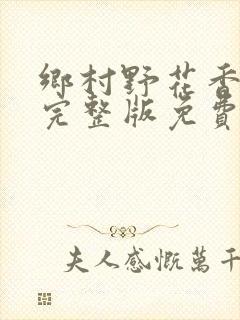 鄉村野花香
完整版免費
夫人感慨萬千